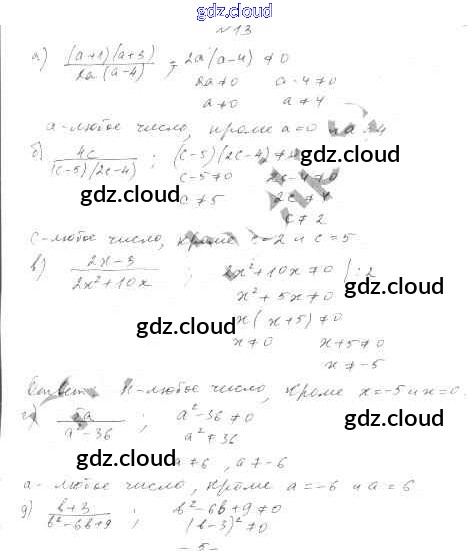 gdz.cloud
№13
а) (a+1)(a+3) / 2a(a-4) ; 2a(a-4) ≠ 0
2a≠0 a-4≠0
a≠0 a≠4
а-любое число, кроме a=0 и a=4
б) 4c / (c-5)(2c-4) ; (c-5)(2c-4)≠0
gdz.cloud
c-5≠0 2c-4≠0
gdz.cloud gdz.cloud
c≠5 2c≠4
c≠2
с-любое число, кроме c=2 и c=5
в) 2x-3 / 2x²+10x ; 2x²+10x≠0 | :2
gdz.cloud
x²+5x≠0
gdz.cloud
x(x+5)≠0
x≠0 x+5≠0
x≠-5
Ответ: x-любое число, кроме x=-5 и x=0.
г) 5a / a²-36 ; a²-36≠0
gdz.cloud
a²≠36
gdz.cloud gdz.cloud
a≠6, a≠-6
а-любое число, кроме a=-6 и a=6
д) b+3 / b²-6b+9 ; b²-6b+9≠0
gdz.cloud
(b-3)²≠0
-5-